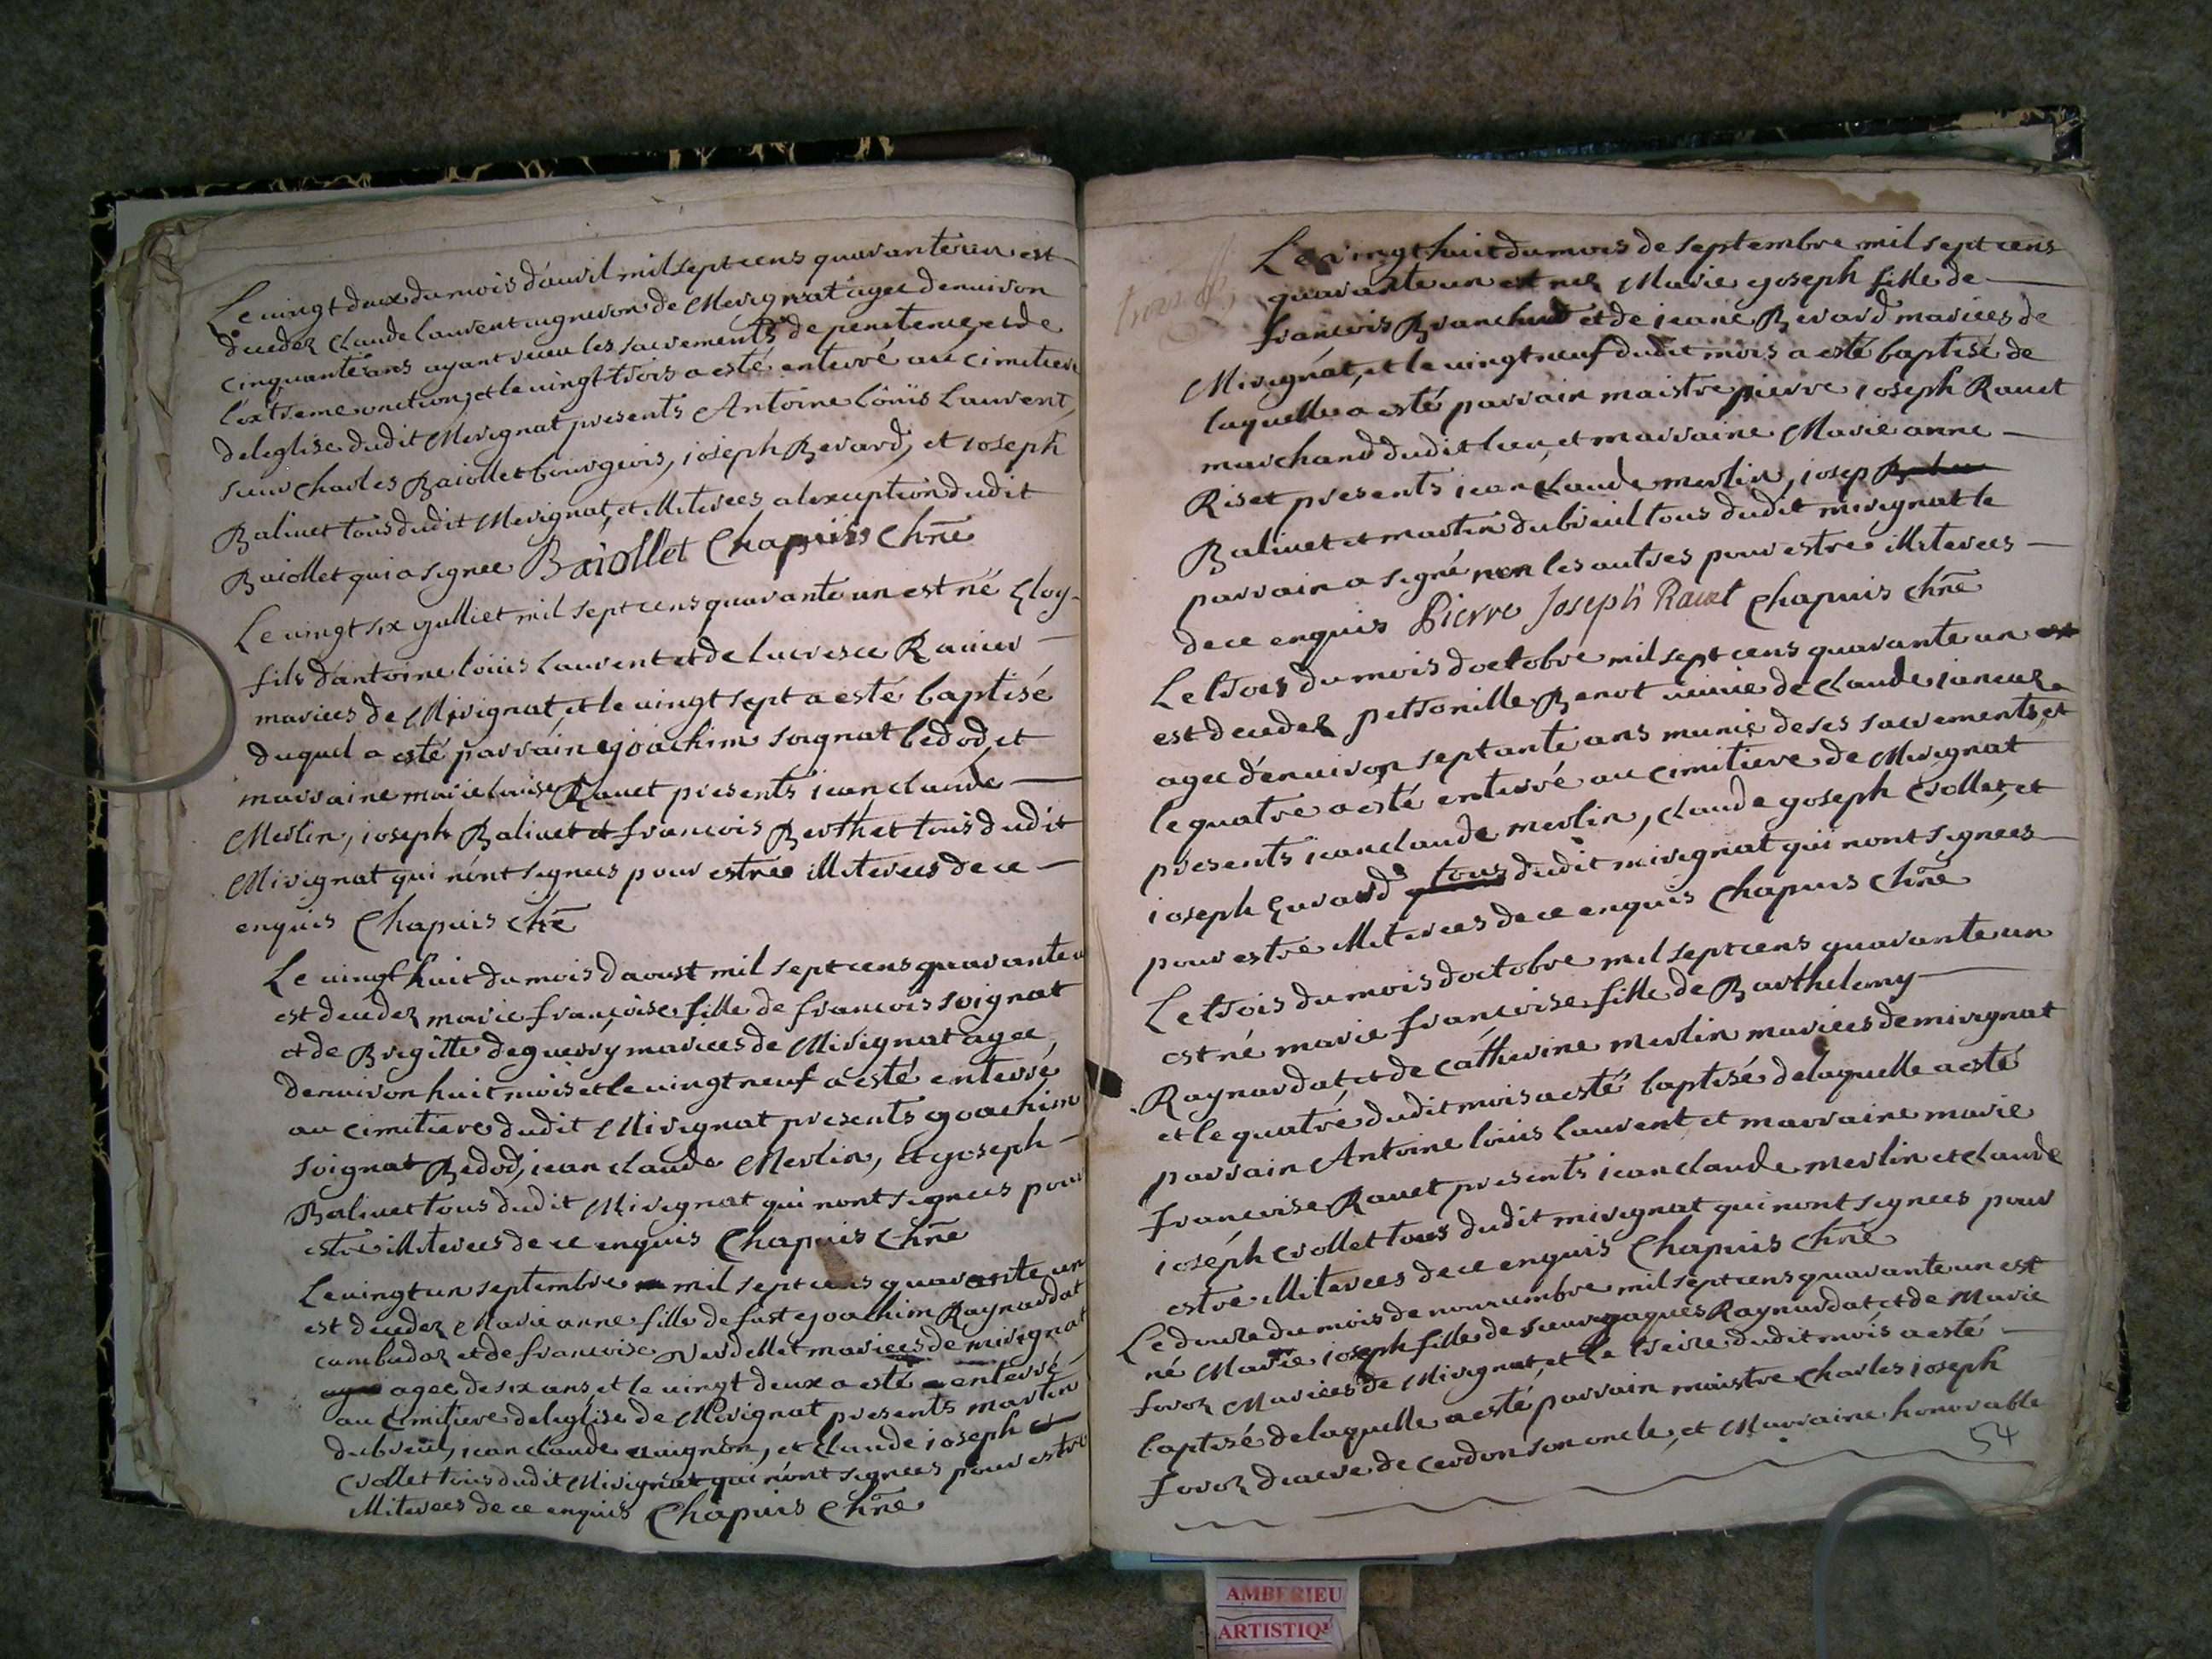 Le vingt deux du mois d'avril mil sept cens quarante un est
decedez Claude laurent vigneron de Merignat agee d'environ
cinquante ans ayant receu les sacrements de penitence et de
l'extreme onction, et le vingt trois a esté enterré au cimitiere
de leglise dudit Merignat presents Antoine loüis Laurent,
sieur Charles Baiollet bourgeois, ioseph Berard, et ioseph
Balivet tous dudit Merignat, et illiterees a lexception dudit
Baiollet qui a signee Baiollet Chapuiss Chne
Le vingt six gulliet mil sept cens quarante un est né Eloy
fils d'antoine loüis laurent et de lucresce Ravier
mariees de Mirignat, et le vingt sept a esté baptisé
duquel a esté parrain gjoachim soignat bedod, et
marraine marie louise Ravet presents iean claude
Merlin, ioseph Balivet et francois Berthet tous dudit
Mirignat qui n'ont signees pour estre illiterees de ce
enquis Chapuis Chē
Le vingt huit du mois daoust mil sept cens quarante u
est decedez marie françoise fille de francois soignat
et de Brigitte deguerry mariees de Mirignat agee,
denviron huit mois et le vingt neuf a esté enterré
au cimitiere dudit Mirignat presents gjoachim
soignat Bedod, iean claude Merlin, et gjoseph
Balivet tous dudit Mirignat qui nont signees pour
estre illiterees de ce enquis Chapuis Chne
Le vingt un septembre mil sept cens quarante un
est decedez Marie anne fille de fust gjoachim Raynardat
cambadoz et de francoise Verdellet mariees de mirignat
agee de six ans, et le vingt deux a esté enterré
au cimitiere de leglise de Merignat presents martin
dubreüil, iean claude, et claude ioseph
Crollet tous dudit Mirignat qui n'ont signees pour estre
illiterees de ce enquis Chapuis Chne
Le vingt huit du mois de septembre mil sept cens
quarante un est nez Marie gjoseph fille de
francois Branchud et de ieane Berard mariees de
Mirignat, et le vingt neuf dudit mois a esté baptisé de
laquelle a esté parrain maistre pierre ioseph Ravet
marchand dudit lieu, et marraine Marie anne
Riset presents iean claude merlin, iosep
Balivet et martin dubreuil tous dudit mirignat le
parrain a signé non les autres pour estre illiterees
de ce enquis Pierre Joseph Ravet Chapuis Chne
Le trois du mois doctobre mil sept cens quarante un
est decedez petronille Benot veuve de claude
agee d'environ septante ans munie de ses sacrements, et
le quatre a esté enterré au cimitiere de Mirignat
presents iean claude merlin, claude gjoseph Crollet, et
ioseph Evrard tous dudit mirignat qui nont signees
pour estre illiterees de ce enquis Chapuis Chne
Le trois du mois doctobre mil sept cens quarante un
est né marie francoise fille de Barthelemy
Raynardat, et de cátherine merlin mariees de mirignat
et le quatre dudit mois a esté baptisé de laquelle a esté
parrain Antoine loüis Laurent et marraine marie
francoise Ravet presents iean claude merlin et claude
ioséph Crollet tous dudit mirignat qui nont signees pour
estre illiterees de ce enquis Chapuis Chne
Le douze du mois de novembre mil sept cens quarante un est
né Marie ioseph fille de sieur gjaques Raynardat, et de Marie
foroz Mariees de Mirignat, et Le treize dudit mois a esté
baptisé de laquelle a esté parrain maistre Charles ioseph
foroz diacre de cerdon son oncle, et Marraine honorable
54
AMBERIEU
ARTISTIQ